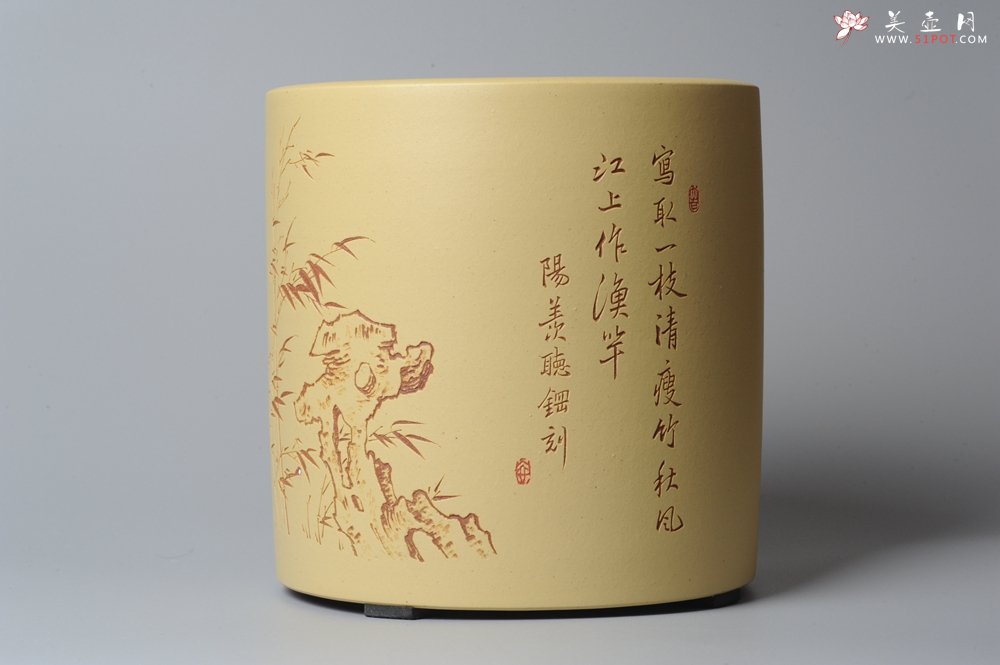 美壶网
WWW.51POT.COM
寫取一枝清瘦竹秋风
江上作漁竿
陽羨聽鋼刻